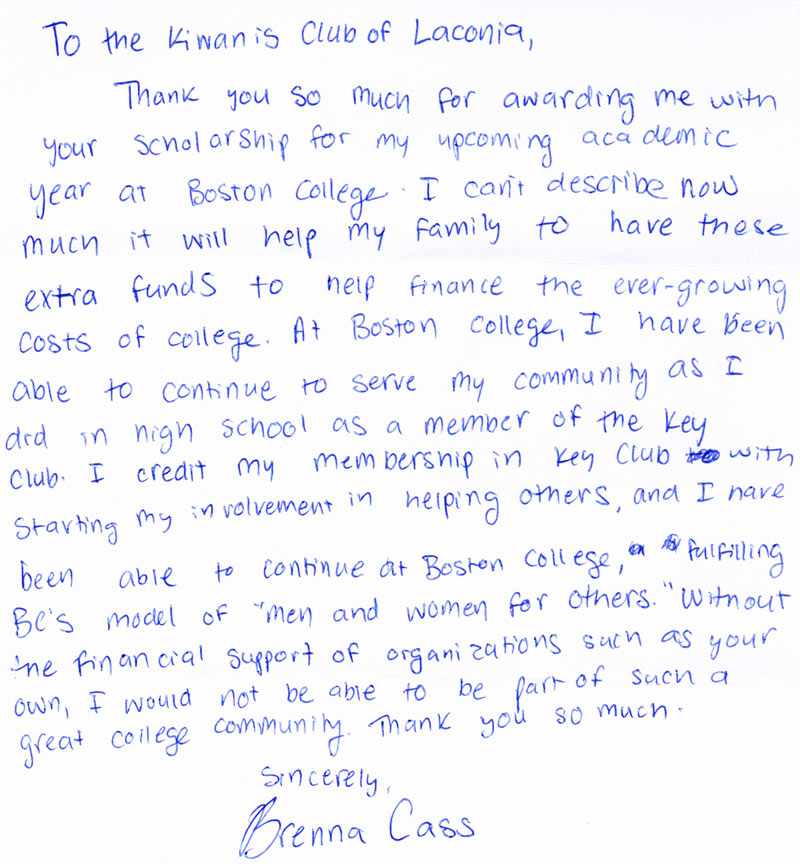 To the Kiwanis Club of Laconia,
Thank you so much for awarding me with
your scholarship for my upcoming academic
year at Boston College. I can't describe how
much it will help my family to have these
extra funds to help finance the ever-growing
costs of college. At Boston College, I have been
able to continue to serve my community as I
did in high school as a member of the Key
Club. I credit my membership in Key Club with
starting my involvement in helping others, and I have
been able to continue at Boston College, fulfilling
BC's model of "men and women for others." Without
the financial support of organizations such as your
own, I would not be able to be part of such a
great college community. Thank you so much.
Sincerely,
Brenna Cass